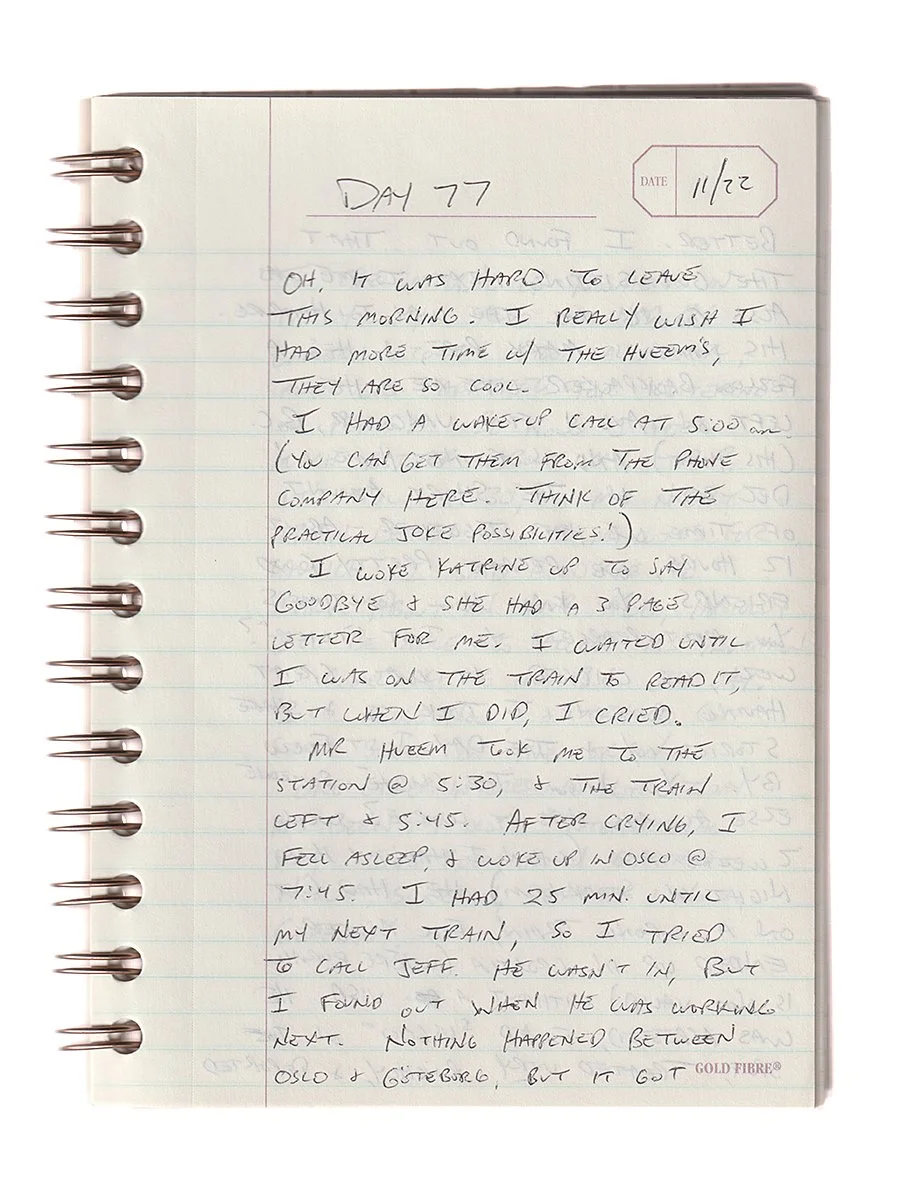 DAY 77
DATE 11/22
OH, IT WAS HARD TO LEAVE
THIS MORNING. I REALLY WISH I
HAD MORE TIME W/ THE HVEEM'S,
THEY ARE SO COOL.
I HAD A WAKE-UP CALL AT 5:00 am
(YOU CAN GET THEM FROM THE PHONE
COMPANY HERE. THINK OF THE
PRACTICAL JOKE POSSIBILITIES!)
I WOKE KATRINE UP TO SAY
GOODBYE & SHE HAD A 3 PAGE
LETTER FOR ME. I WAITED UNTIL
I WAS ON THE TRAIN TO READ IT,
BUT WHEN I DID, I CRIED.
MR HVEEM TOOK ME TO THE
STATION @ 5:30, & THE TRAIN
LEFT & 5:45. AFTER CRYING, I
FELL ASLEEP, & WOKE UP IN OSLO @
7:45. I HAD 25 MIN. UNTIL
MY NEXT TRAIN, SO I TRIED
TO CALL JEFF. HE WASN'T IN, BUT
I FOUND OUT WHEN HE WAS WORKING
NEXT. NOTHING HAPPENED BETWEEN
OSLO & GÖTEBORG, BUT IT GOT
GOLD FIBRE®